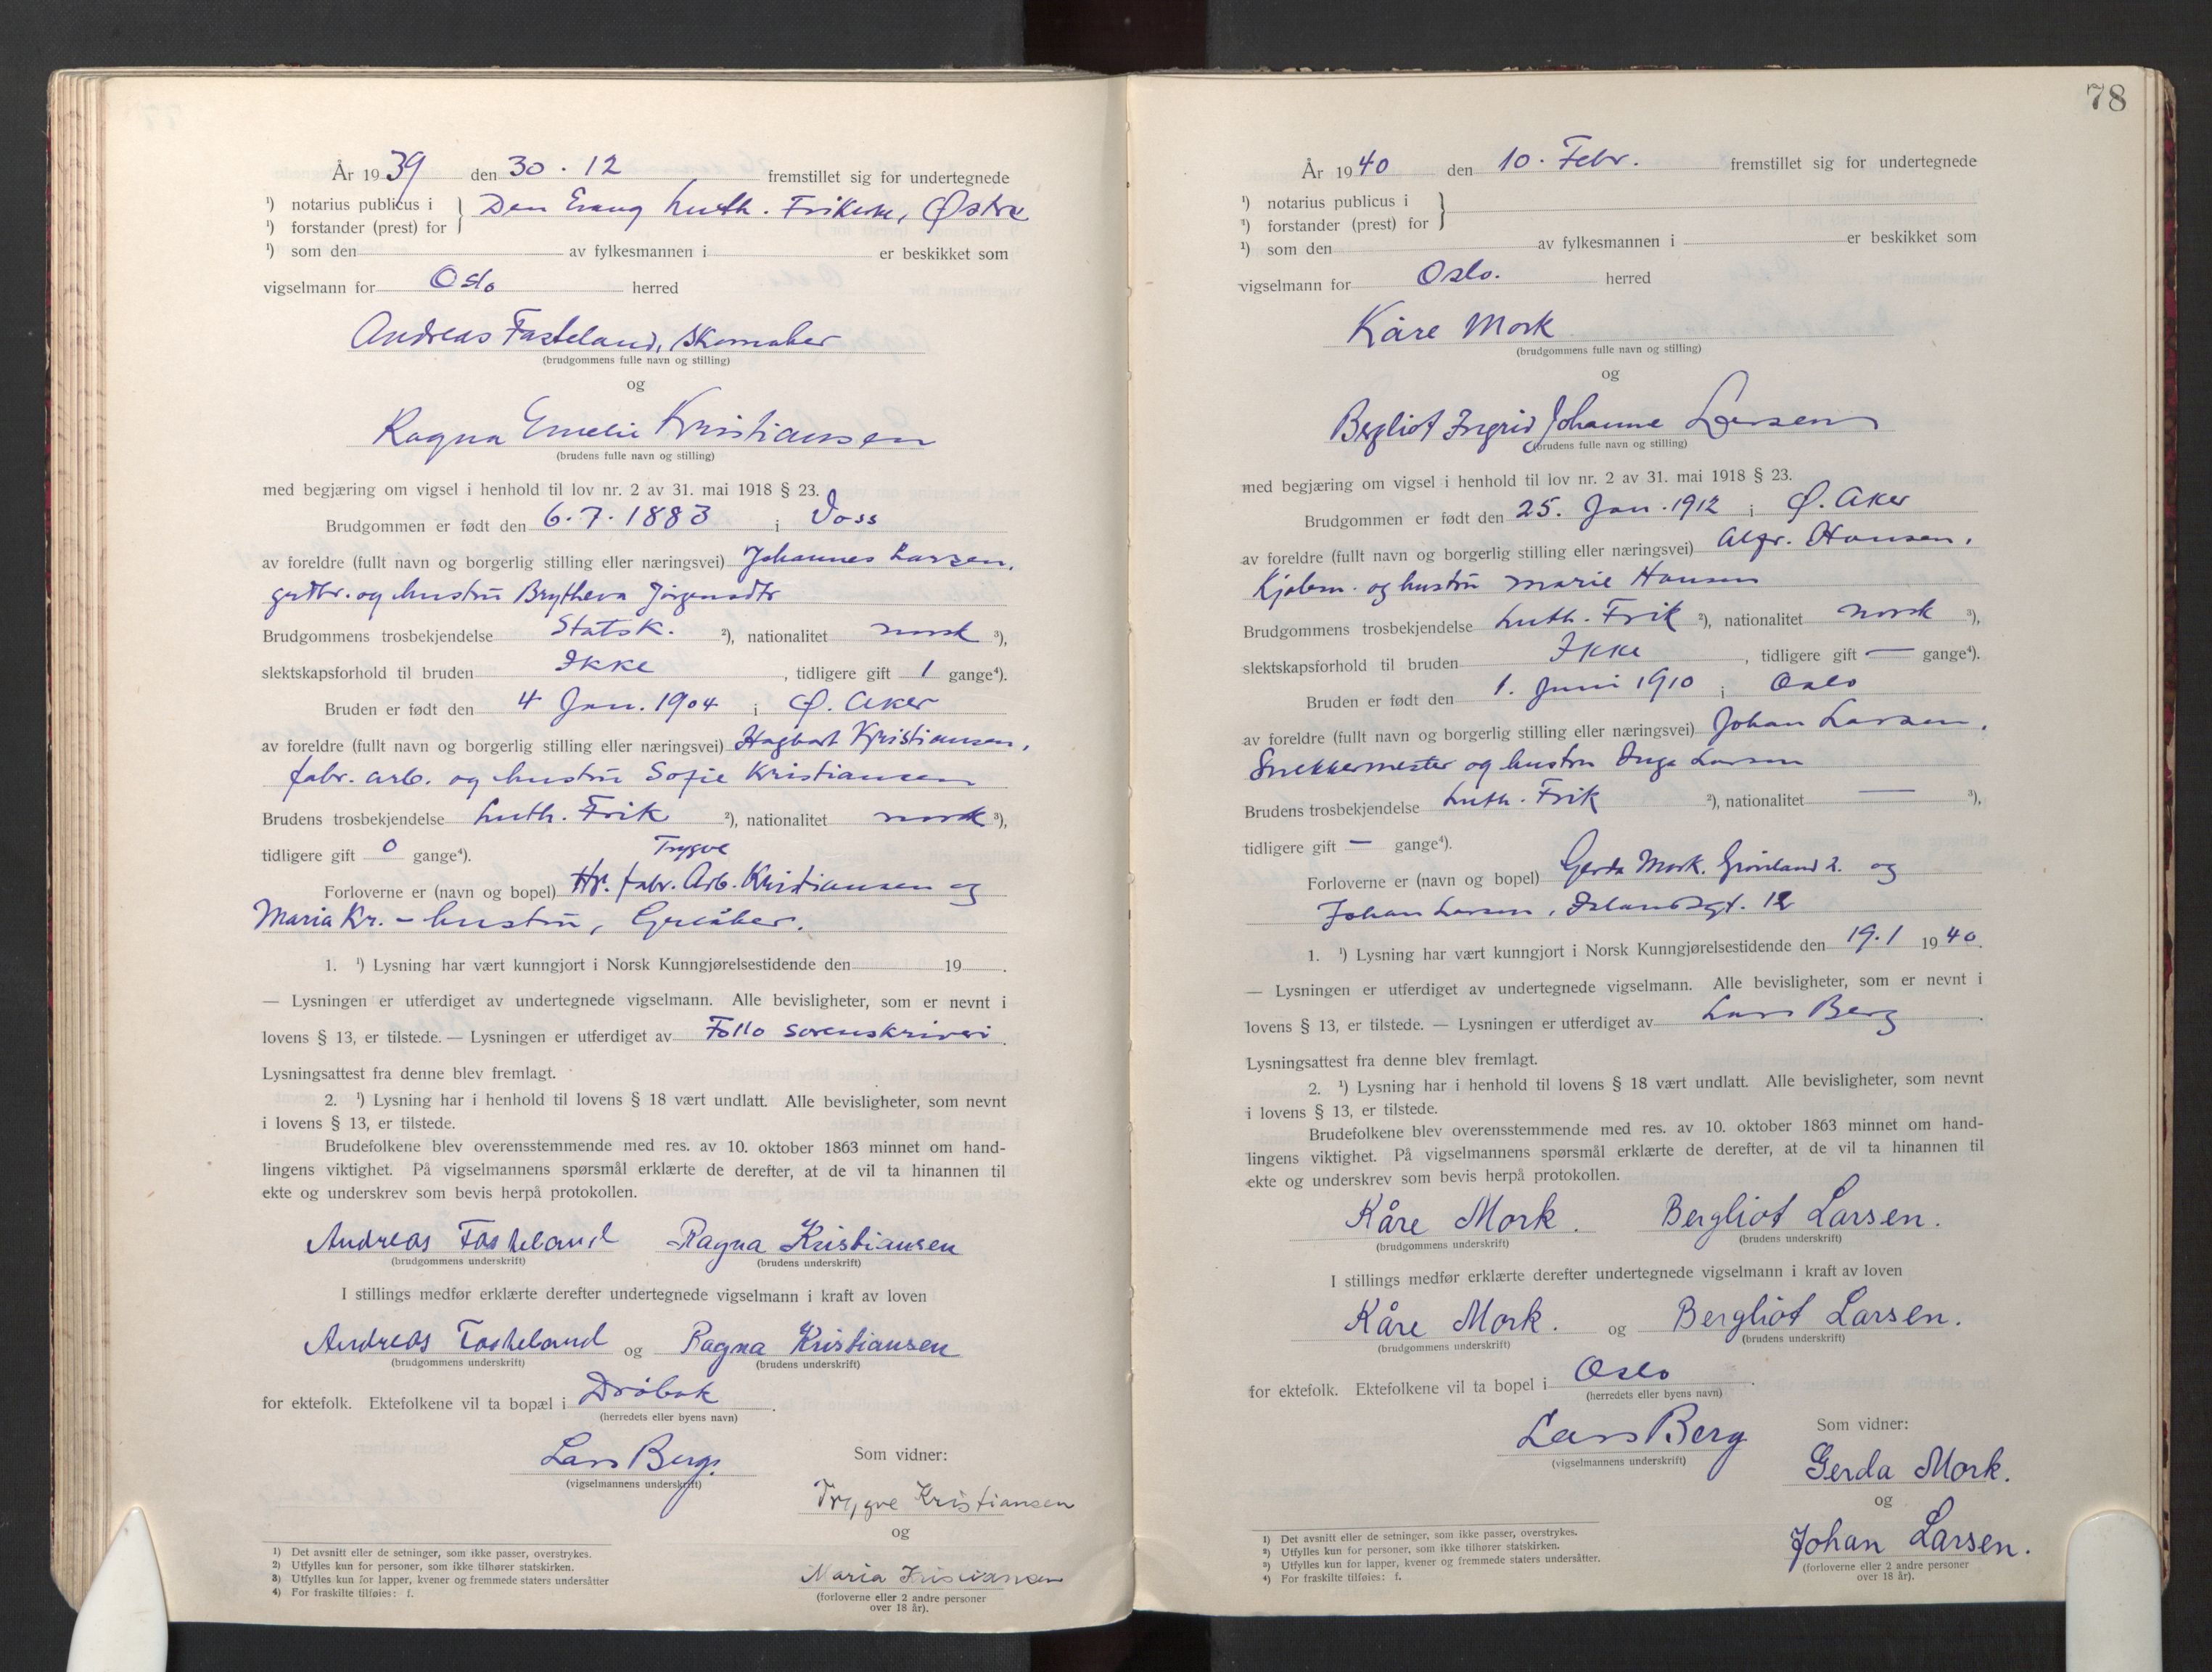 År 1939 den 30. 12 fremstillet sig for undertegnede
¹) notarius publicus i
¹) forstander (prest) for } Den Evang Luth. Frikirke, Østre
¹) som den av fylkesmannen i er beskikket som
vigselmann for Oslo herred
Andreas Fasteland, Skomaker
(brudgommens fulle navn og stilling)
og
Ragna Emelie Kristiansen
(brudens fulle navn og stilling)
med begjæring om vigsel i henhold til lov nr. 2 av 31. mai 1918 § 23.
Brudgommen er født den 6. 7. 1883 i Voss
av foreldre (fullt navn og borgerlig stilling eller næringsvei) Johannes Larsen,
grdbr. og hustru Brytheva
Brudgommens trosbekjendelse Statsk. ²), nationalitet norsk ³),
slektskapsforhold til bruden Ikke, tidligere gift 1 gange⁴).
Bruden er født den 4 Jan. 1904 i Ø. Aker
av foreldre (fullt navn og borgerlig stilling eller næringsvei) Hagbart Kristiansen,
fabr. arb. og hustru Sofie Kristiansen
Brudens trosbekjendelse Luth. Frik ²), nationalitet norsk ³),
tidligere gift 0 gange⁴). Trygve
Forloverne er (navn og bopel) Hr. fabr. Arb. Kristiansen og
Maria Kr. - hustru, Greåker.
1. ¹) Lysning har vært kunngjort i Norsk Kunngjørelsestidende den 19 .
— Lysningen er utferdiget av undertegnede vigselmann. Alle bevisligheter, som er nevnt i
lovens § 13, er tilstede. — Lysningen er utferdiget av Follo sorenskriveri.
Lysningsattest fra denne blev fremlagt.
2. ¹) Lysning har i henhold til lovens § 18 vært undlatt. Alle bevisligheter, som nevnt
i lovens § 13, er tilstede.
Brudefolkene blev overensstemmende med res. av 10. oktober 1863 minnet om hand-
lingens viktighet. På vigselmannens spørsmål erklærte de derefter, at de vil ta hinannen til
ekte og underskrev som bevis herpå protokollen.
Andreas Fasteland Ragna Kristiansen
(brudgommens underskrift) (brudens underskrift)
I stillings medfør erklærte derefter undertegnede vigselmann i kraft av loven
Andreas Fasteland og Ragna Kristiansen
(brudgommens underskrift) (brudens underskrift)
for ektefolk. Ektefolkene vil ta bopæl i Drøbak.
(herredets eller byens navn)
Lars Berg.
(vigselmannens underskrift)
Som vidner:
Trygve Kristiansen
og
Maria Kristiansen
(forloverne eller 2 andre personer
over 18 år).
1) Det avsnitt eller de setninger, som ikke passer, overstrykes.
2) Utfylles kun for personer, som ikke tilhører statskirken.
3) Utfylles kun for lapper, kvener og fremmede staters undersåtter
4) For fraskilte tilføies: f.
78
År 1940 den 10. Febr. fremstillet sig for undertegnede
¹) notarius publicus i
¹) forstander (prest) for }
¹) som den av fylkesmannen i er beskikket som
vigselmann for Oslo. herred
Kåre Mork
(brudgommens fulle navn og stilling)
og
Bergliot Ingrid Johanne Larsen
(brudens fulle navn og stilling)
med begjæring om vigsel i henhold til lov nr. 2 av 31. mai 1918 § 23.
Brudgommen er født den 25. Jan. 1912 i Ø. Aker
av foreldre (fullt navn og borgerlig stilling eller næringsvei) Alfr. Hansen,
Kjøbm. og hustru Marie Hansen
Brudgommens trosbekjendelse Luth. Frik ²), nationalitet norsk ³),
slektskapsforhold til bruden Ikke, tidligere gift — gange⁴).
Bruden er født den 1. Juni 1910 i Oslo
av foreldre (fullt navn og borgerlig stilling eller næringsvei) Johan Larsen,
Snekkermester og hustru Inga Larsen
Brudens trosbekjendelse Luth. Frik ²), nationalitet — ³),
tidligere gift — gange⁴).
Forloverne er (navn og bopel) Gerda Mork. Grønland 2. og
Johan Larsen, Islandsgt. 12
1. ¹) Lysning har vært kunngjort i Norsk Kunngjørelsestidende den 19.1 1940.
— Lysningen er utferdiget av undertegnede vigselmann. Alle bevisligheter, som er nevnt i
lovens § 13, er tilstede. — Lysningen er utferdiget av Lars Berg.
Lysningsattest fra denne blev fremlagt.
2. ¹) Lysning har i henhold til lovens § 18 vært undlatt. Alle bevisligheter, som nevnt
i lovens § 13, er tilstede.
Brudefolkene blev overensstemmende med res. av 10. oktober 1863 minnet om hand-
lingens viktighet. På vigselmannens spørsmål erklærte de derefter, at de vil ta hinannen til
ekte og underskrev som bevis herpå protokollen.
Kåre Mork. Bergliot Larsen.
(brudgommens underskrift) (brudens underskrift)
I stillings medfør erklærte derefter undertegnede vigselmann i kraft av loven
Kåre Mork. og Bergliot Larsen.
(brudgommens underskrift) (brudens underskrift)
for ektefolk. Ektefolkene vil ta bopel i Oslo.
(herredets eller byens navn)
Lars Berg
(vigselmannens underskrift)
Som vidner:
Gerda Mork.
og
Johan Larsen.
(forloverne eller 2 andre personer
over 18 år).
1) Det avsnitt eller de setninger, som ikke passer, overstrykes.
2) Utfylles kun for personer, som ikke tilhører statskirken.
3) Utfylles kun for lapper, kvener og fremmede staters undersåtter.
4) For fraskilte tilføies: f.